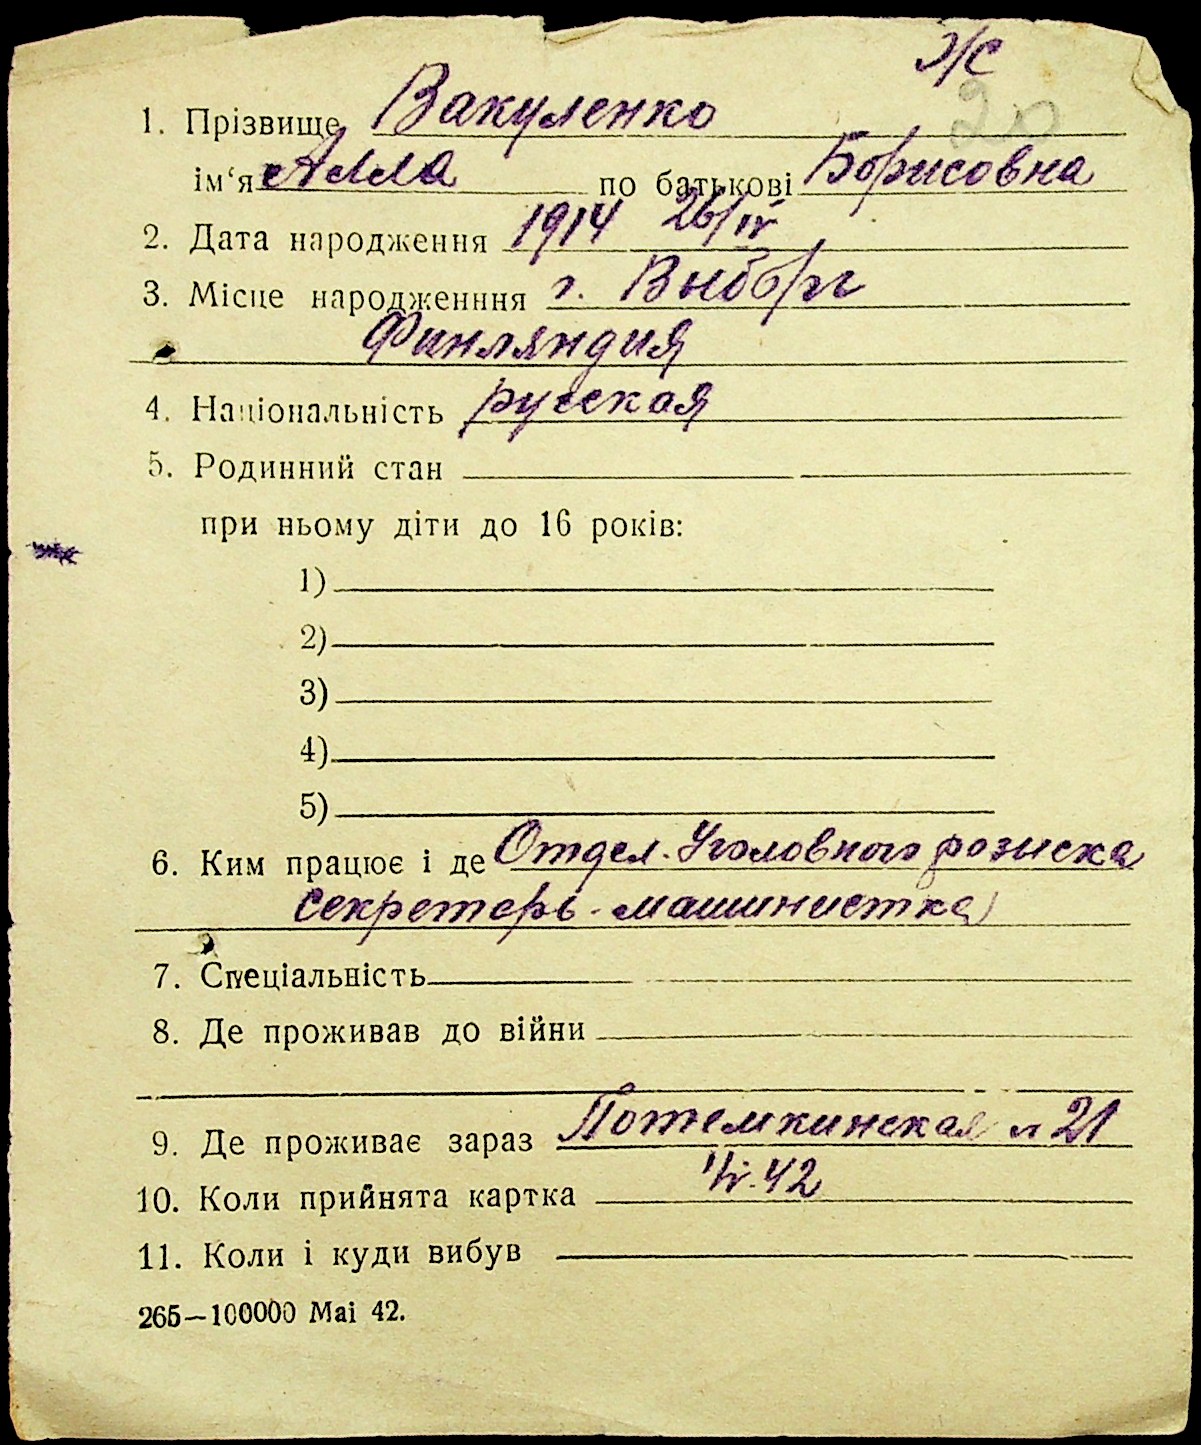 Ж
20
1. Прізвище Вакуленко
ім‘я Алла по батькові Борисовна
2. Дата народження 1914 26/IV
3. Місце народженння г. Выборг
Финляндия
4. Національність русская
5. Родинний стан
при ньому діти до 16 років:
1)
2)
3)
4)
5)
6. Ким працює і де Отдел. Уголовного розыска
секретарь-машинистка
7. Спеціальність
8. Де проживав до війни
9. Де проживає зараз Потемкинская 21
10. Коли прийнята картка 42
11. Коли і куди вибув
265—100000 Mai 42.